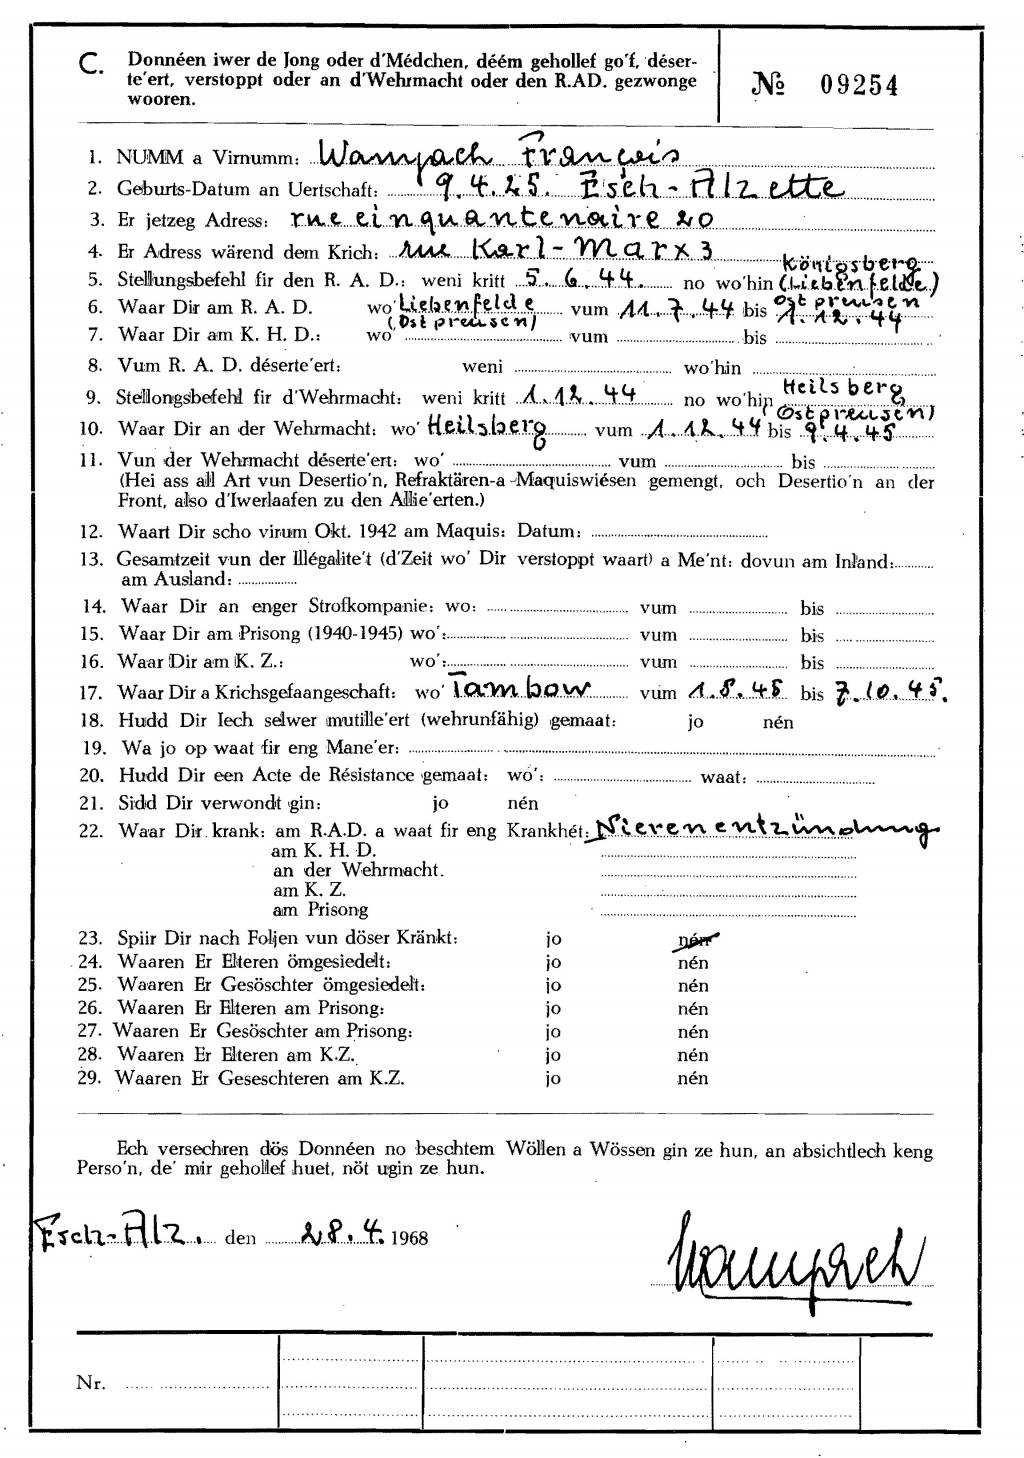 C. Donnéen iwer de Jong oder d'Médchen, déém gehollef go'f, déser-
te'ert, verstoppt oder an d'Wehrmacht oder den R.AD. gezwonge
wooren.
№ 09254
1. NUMM a Virnumm: Wampach François
2. Geburts-Datum an Uertschaft: 9.4.25. Esch-Alzette
3. Er jetzeg Adress: rue cinquantenaire 20
4. Er Adress wärend dem Krich: rue Karl-Marx 3
Königsberg
5. Stellungsbefehl fir den R. A. D.: weni kritt 5.6.44. no wo'hin (Liebenfelde)
Ostpreusen
6. Waar Dir am R. A. D. wo' Liebenfelde vum 11.7.44 bis 1.12.44
(Ostpreusen)
7. Waar Dir am K. H. D.: wo' vum bis
8. Vum R. A. D. déserte'ert: weni wo'hin
9. Stellongsbefehl fir d'Wehrmacht: weni kritt 1.12.44 no wo'hin Heilsberg
(Ostpreusen)
10. Waar Dir an der Wehrmacht: wo' Heilsberg vum 1.12.44 bis 9.4.45
11. Vun der Wehrmacht déserte'ert: wo' vum bis
(Hei ass all Art vun Desertio'n, Refraktären-a-Maquiswiésen gemengt, och Desertio'n an der
Front, also d'Iwerlaafen zu den Allie'erten.)
12. Waart Dir scho virum Okt. 1942 am Maquis: Datum:
13. Gesamtzeit vun der Illégalite't (d'Zeit wo' Dir verstoppt waart) a Me'nt: dovun am Inland:
am Ausland:
14. Waar Dir an enger Strofkompanie: wo: vum bis
15. Waar Dir am Prisong (1940-1945) wo': vum bis
16. Waar Dir am K. Z.: wo': vum bis
17. Waar Dir a Krichsgefaangeschaft: wo' Tambow vum 1.8.45 bis 7.10.45.
18. Hudd Dir Iech selwer mutille'ert (wehrunfähig) gemaat: jo nén
19. Wa jo op waat fir eng Mane'er:
20. Hudd Dir een Acte de Résistance gemaat: wo': waat:
21. Sidd Dir verwondt gin: jo nén
22. Waar Dir krank: am R.A.D. a waat fir eng Krankhét: Nierenentzündung
am K. H. D.
an der Wehrmacht.
am K. Z.
am Prisong
23. Spiir Dir nach Foljen vun döser Kränkt: jo nén
24. Waaren Er Elteren ömgesiedelt: jo nén
25. Waaren Er Gesöschter ömgesiedelt: jo nén
26. Waaren Er Elteren am Prisong: jo nén
27. Waaren Er Gesöschter am Prisong: jo nén
28. Waaren Er Elteren am K.Z. jo nén
29. Waaren Er Geseschteren am K.Z. jo nén
Ech versechren dös Donnéen no beschtem Wöllen a Wössen gin ze hun, an absichtlech keng
Perso'n, de' mir gehollef huet, nöt ugin ze hun.
Esch-Alz. den 28.4.1968
Wampach
Nr.